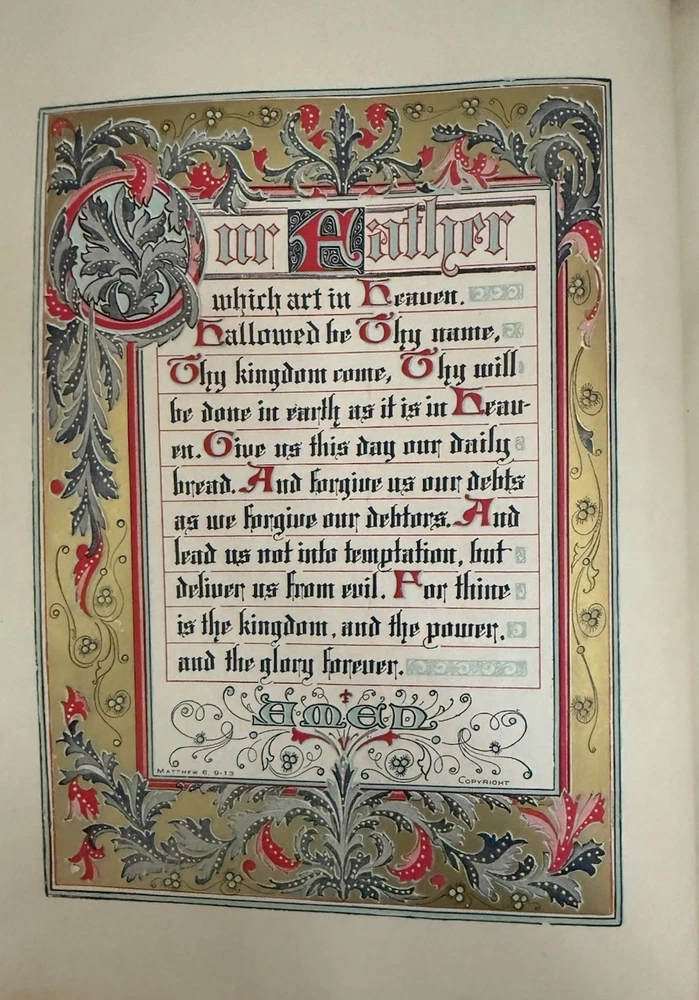 Our Father
which art in Heaven.
Hallowed be Thy name,
Thy kingdom come, Thy will
be done in earth as it is in Heav-
en. Give us this day our daily
bread. And forgive us our debts
as we forgive our debtors. And
lead us not into temptation, but
deliver us from evil. For thine
is the kingdom, and the power,
and the glory forever.
AMEN
MATTHEW 6, 9-13
COPYRIGHT